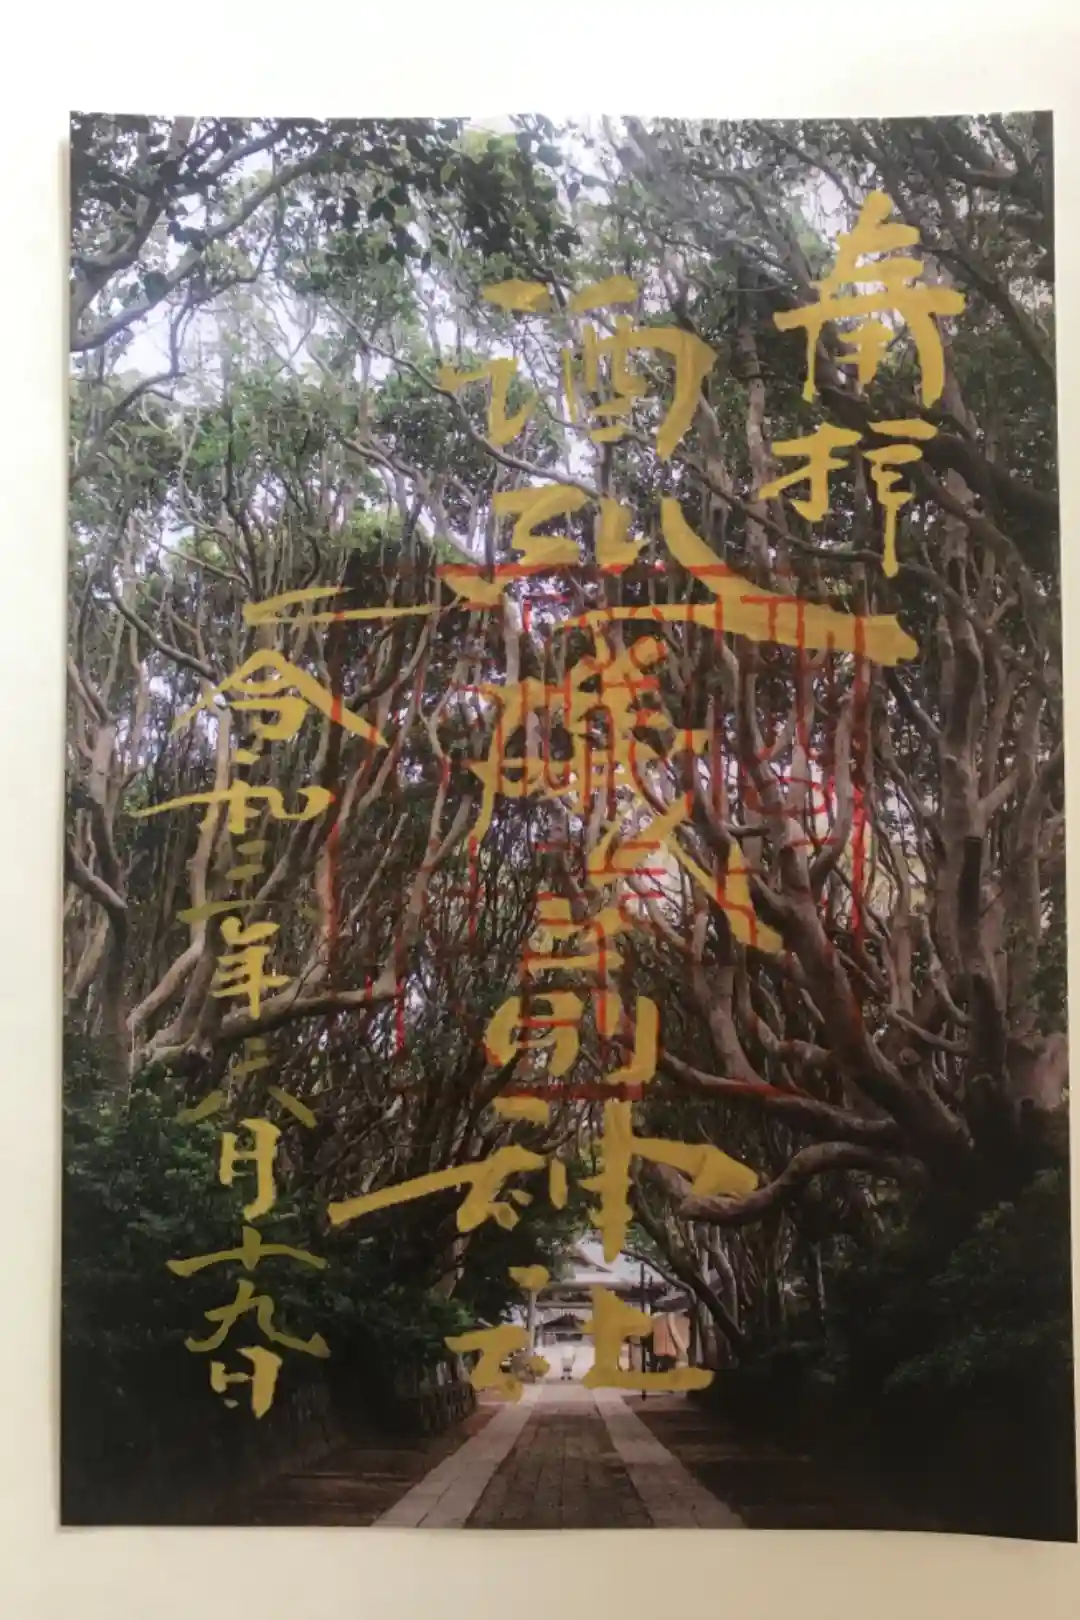 奉拝
酒列磯前神社
令和三年六月十九日